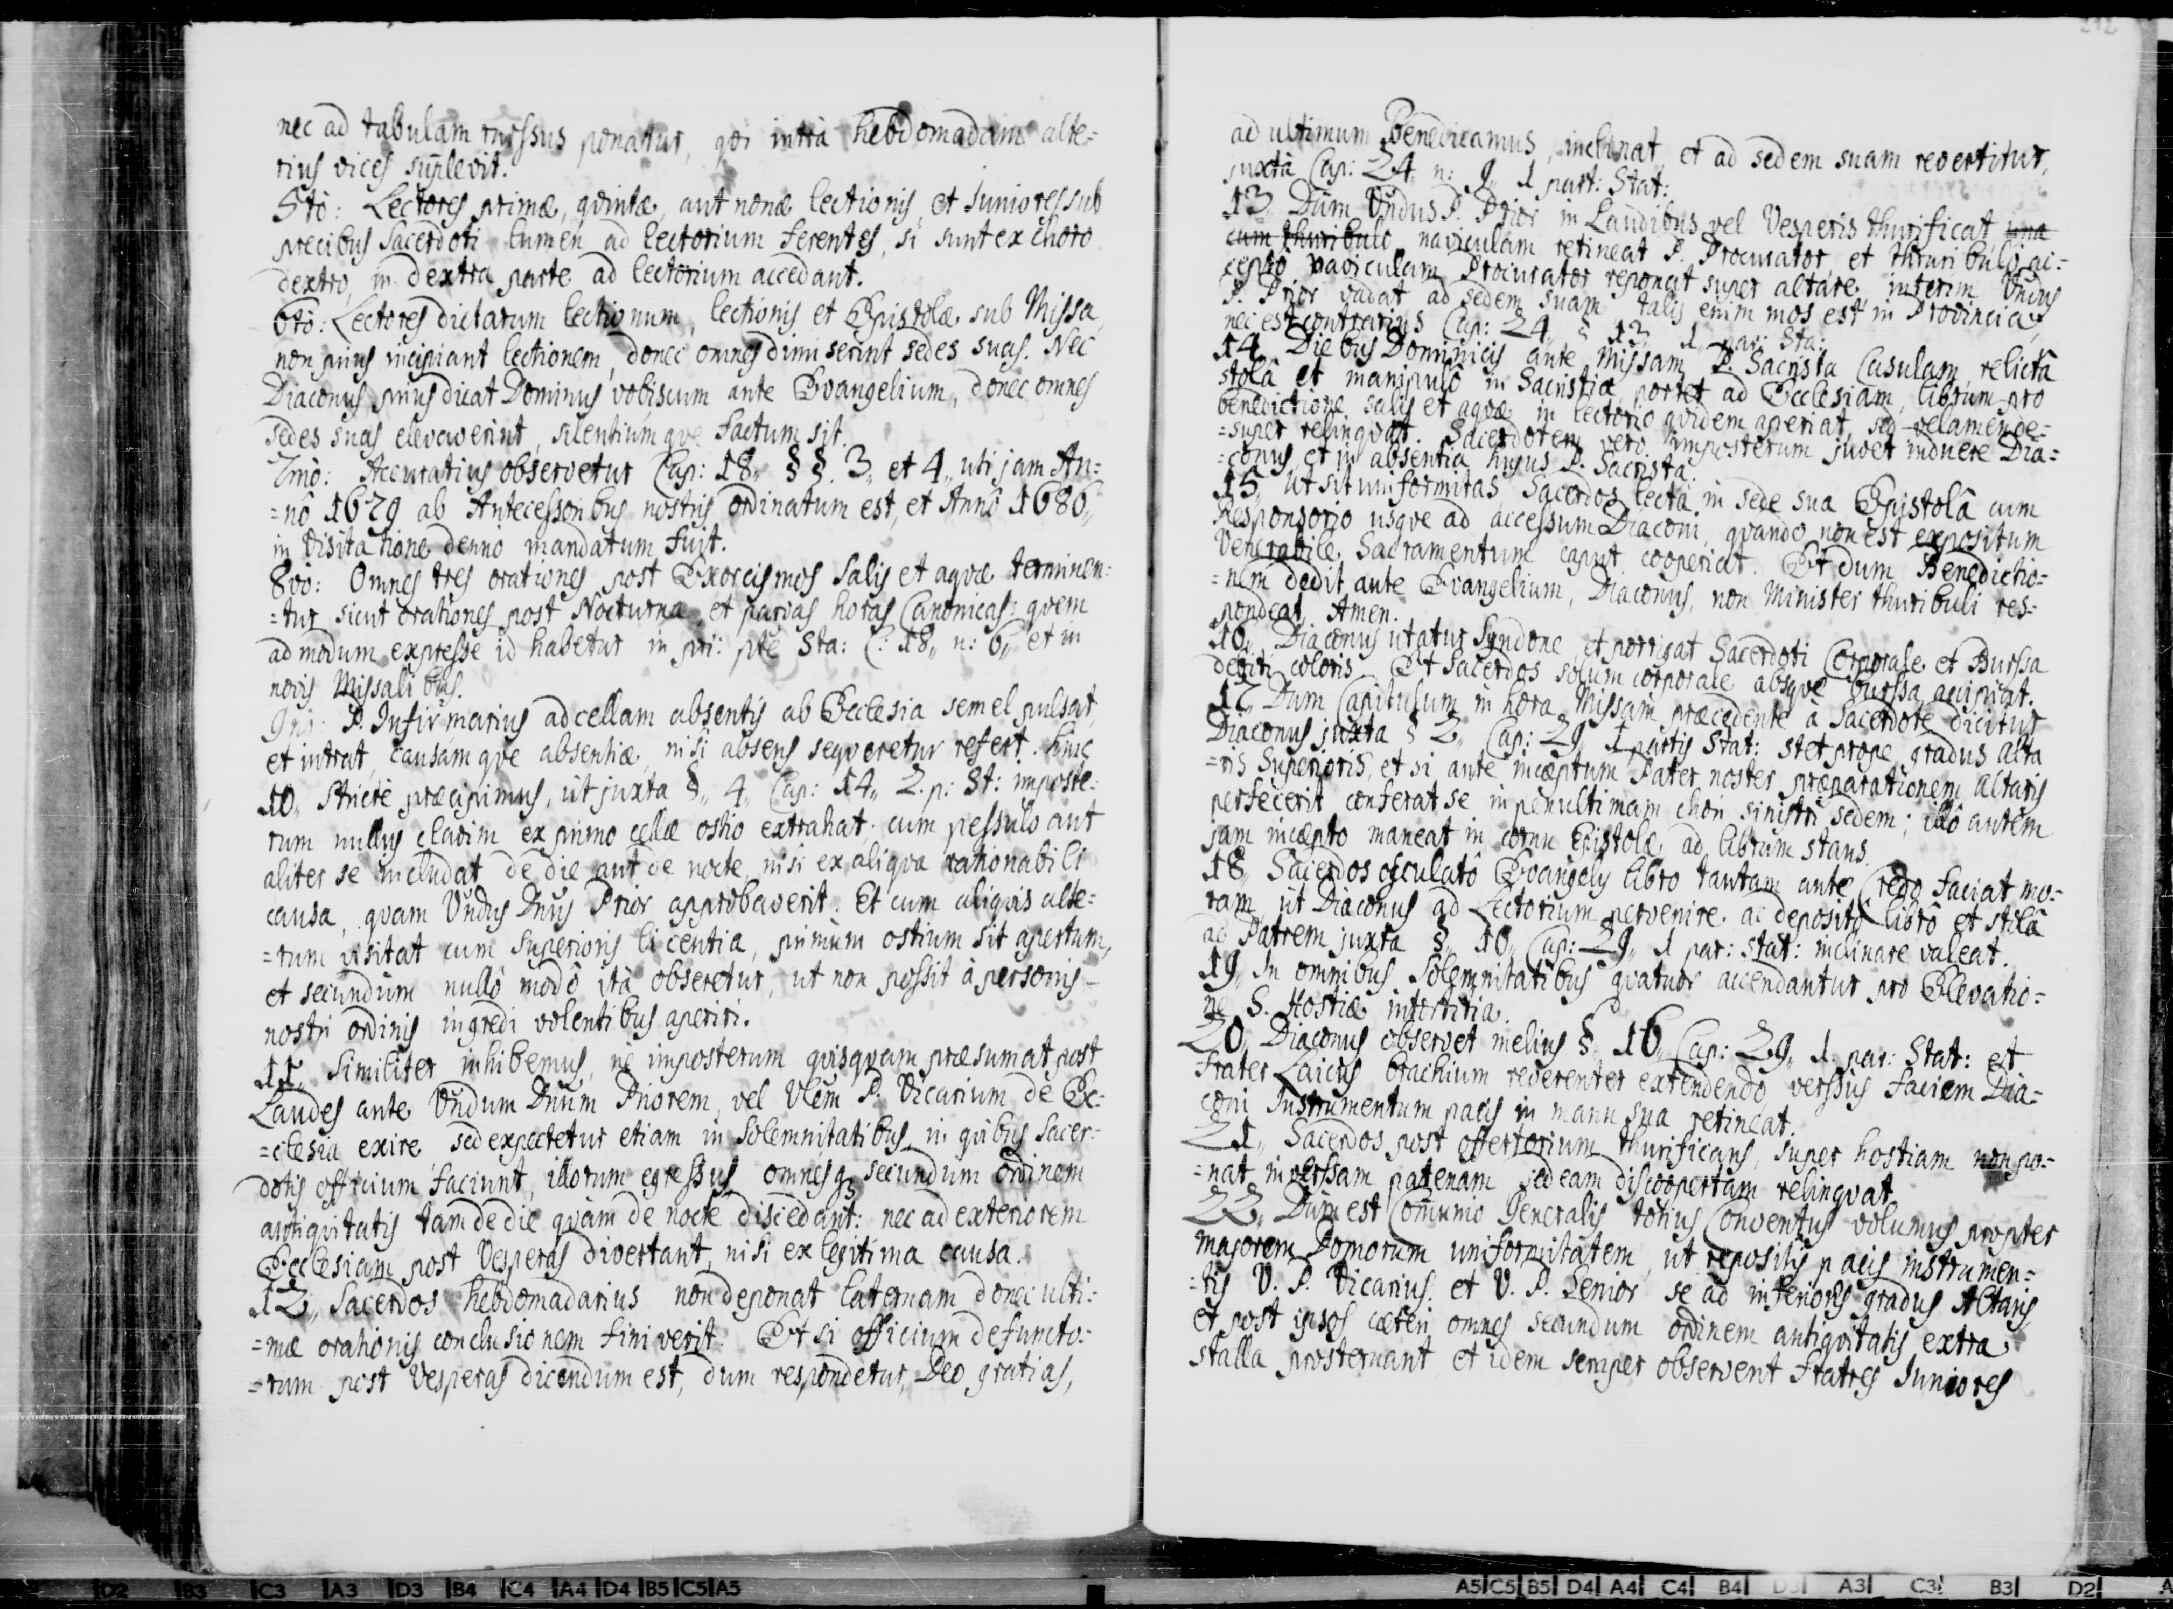 nec ad tabulam rursus ponatur, qvi intrà hebdomadam alte=
rius vices supplevit.
5tô: Lectores primæ, qvintæ, aut nonæ lectionis, et Juniores sub
precibus Sacerdoti lumen ad lectorium ferentes, si sunt ex choro
dextro, in dextra parte ad lectorium accedant.
6tô: Lectores dictarum lectionum, lectionis et Epistolæ sub Missa,
non prius incipiant lectionem, donec omnes dimiserint sedes suas. Nec
Diaconus prius dicat Dominus vobiscum ante Evangelium, donec omnes
sedes suas elevaverint, silentiumqve factum sit.
7mô: Accuratius observetur Cap: 18,, §§. 3,, et 4,, uti jam An:
=nô 1679 ab Antecessoribus nostris ordinatum est, et Annô 1686,,
in Visitatione denuo mandatum fuit.
8vô: Omnes tres orationes post Exorcismos Salis et aqvæ terminen:
=tur sicut orationes post Nocturna, et parvas horas Canonicas; qvem
admodum expresse id habetur in pri: pte Sta: C: 18,, n: 6,, et in
novis Missalibus.
9nô: P. Infirmarius ad cellam absentis ab Ecclesia semel pulsat,
et intrat, causamqve absentiæ, nisi absens seqveretur refert. Hinc
10,, Stricte præcipimus, ut juxta §,, 4,, Cap: 14,, 2. p: St: imposte:
rum nullus clavim ex primo cellæ ostio extrahat, cum pessulo aut
aliter se includat de die aut de nocte, nisi ex aliqva rationabili
causa, qvam Vndus Dnus Prior approbaverit. Et cum aliqvis alte=
=rum visitat cum Superioris licentia, primum ostium sit apertum,
et secundum nullô modô ità obseretur, ut non possit à personis
nostri ordinis ingredi volentibus aperiri.
11,, Similiter inhibemus, ne imposterum qvisqvam præsumat post
Laudes ante Vndum Dnum Priorem, vel Vlem P. Vicarium de Ec=
=clesia exire, sed expectetur etiam in Solemnitatibus, in qvibus Sacer:
dotis officium faciunt, illorum egressus, omnesq; secundum ordinem
antiqvitatis tam de die qvàm de nocte discedant: nec ad exteriorem
Ecclesiam post Vesperas divertant, nisi ex legitima causa.
12,, Sacerdos hebdomadarius non deponat laternam donec ulti:
=mæ orationis conclusionem finiverit. Et si officium defuncto:
=rum post Vesperas dicendum est, dum respondetur, Deo gratias,
212
ad ultimum Benedicamus, inclinat, et ad sedem suam revertitur,
juxtà Cap: 24,, n: 9,, 1 part: Stat:
13 Dum Vndus P. Prior in Laudibus vel Vesperis thurificat, una
cum thuribulo naviculam retineat P. Procurator, et thuribulô ac:
ceptô naviculam Procurator reponat super altare, interim Vndus
P. Prior vadat ad sedem suam, talis enim mos est in Provincia,
nec est contrarius Cap: 24,, § 13,, 1,, par: Sta:
14 Diebus Dominicis ante Missam, P. Sacrista Casulam, relictâ
stolâ et manipulô in Sacristia, portet ad Ecclesiam, librum pro
benedictione salis et aqvæ in lectorio qvidem aperiat, sed velamen de=
=super relinqvat. Sacerdotem vero imposterum juvet induere Dia=
=conus, et in absentia hujus P. Sacrista.
15,, Ut sit uniformitas, Sacerdos lectâ in sede sua Epistolâ cum
Responsorio usqve ad accessum Diaconi, qvando non est expositum
Venerabile Sacramentum caput cooperiat. Et dum Benedictio=
=nem dedit ante Evangelium, Diaconus, non Minister thuribuli res=
pondeat, Amen.
16,, Diaconus utatur Syndone, et porrigat Sacerdoti Corporale et Burssa
debiti coloris. Et Sacerdos solum corporale absqve burssa accipiat.
17,, Dum Capitulum in hora Missam præcedente à Sacerdote dicitur
Diaconus juxta § 2,, Cap: 29,, 1 partis Stat: stet prope gradus alta
=ris Superioris, et si ante incæptum Pater noster præparationem altaris
perfecerit, conferat se in penultimam chori sinistri sedem; illô autem
jam incæpto maneat in cornu Epistolæ ad librum stans.
18,, Sacerdos osculatô Evangelij libro tantam ante Credo faciat mo=
ram, ut Diaconus ad Lectorium pervenire, ac depositô librô et stolâ
ad Patrem juxta §,, 10,, Cap: 29,, 1 par: stat: inclinare valeat.
19,, In omnibus Solemnitatibus qvatuor accendantur pro Elevatio=
ne S. Hostiæ intortitia.
20,, Diaconus observet melius §,, 16,, Cap: 29,, 1. par: Stat: et
Frater Laicus brachium reverenter extendendo verssus faciem Dia=
coni Instrumentum pacis in manu sua retineat.
21,, Sacerdos post offertorium thurificans, super hostiam non po:
=nat inverssam patenam, sed eam discoopertam relinqvat.
22,, Dum est Communio Generalis totius Conventus volumus propter
majorem Domorum uniformitatem, ut repositis pacis instrumen=
=tis V. P. Vicarius, et V. P. Senior se ad inferioris gradus Altaris,
et post ipsos cæteri omnes secundum ordinem antiqvitatis extra
stalla prosternant, et idem semper observent Fratres Juniores